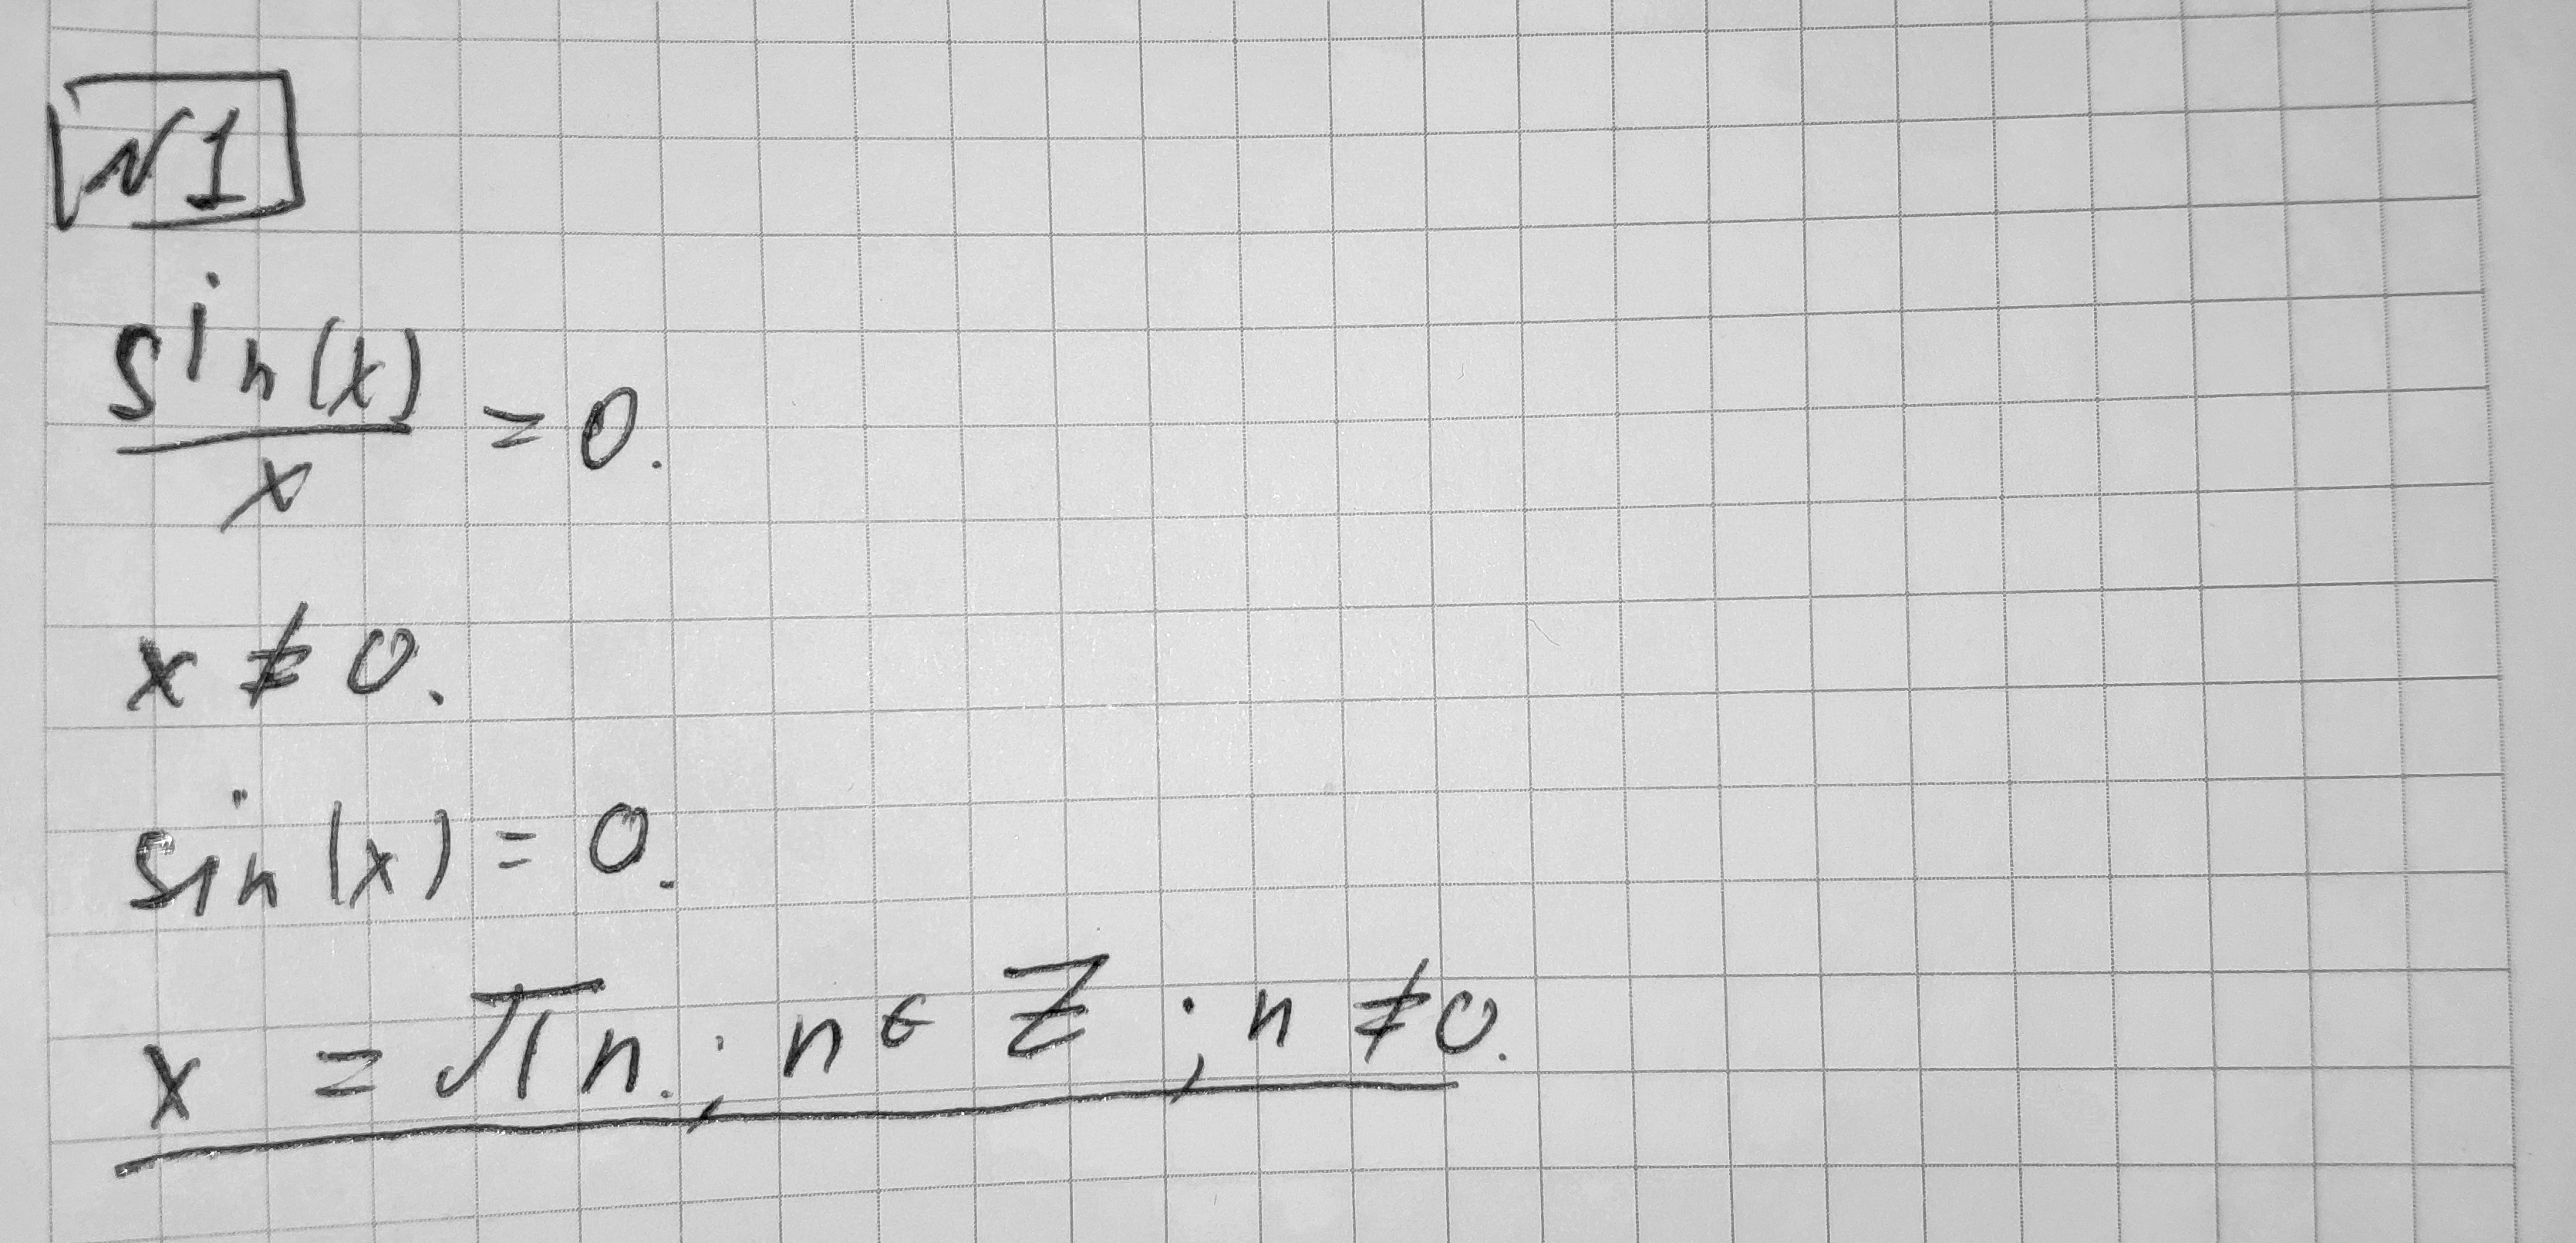 N1
sin(x)/x = 0.
x ≠ 0.
sin(x) = 0.
x = πn.; n ∈ Z; n ≠ 0.